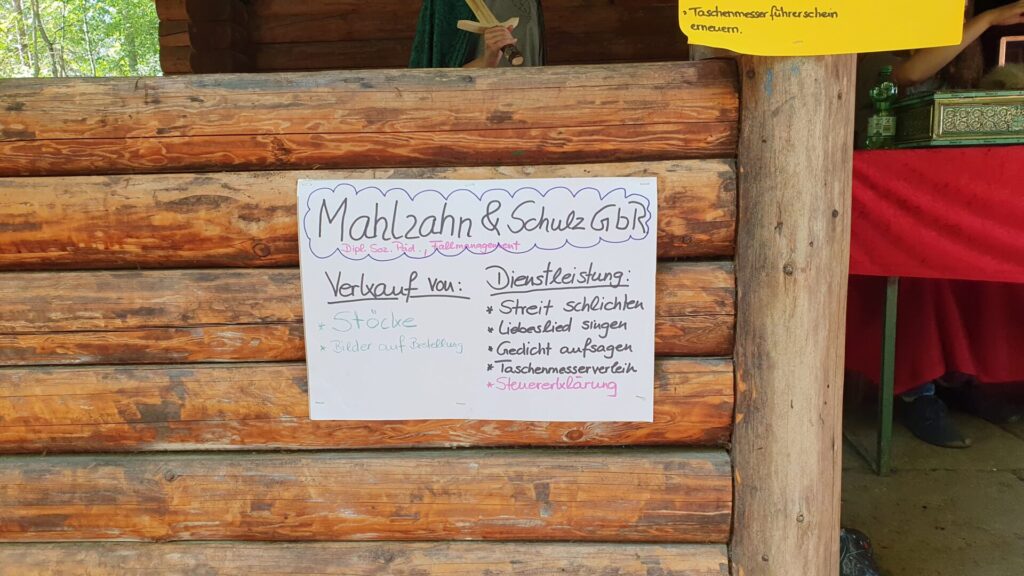 * Taschenmesserführerschein
erneuern.
Mahlzahn & Schulz GbR
Dipl. Soz. Päd., Fallmanagement
Verkauf von:
* Stöcke
* Bilder auf Bestellung
Dienstleistung:
* Streit schlichten
* Liebeslied singen
* Gedicht aufsagen
* Taschenmesserverleih
* Steuererklärung